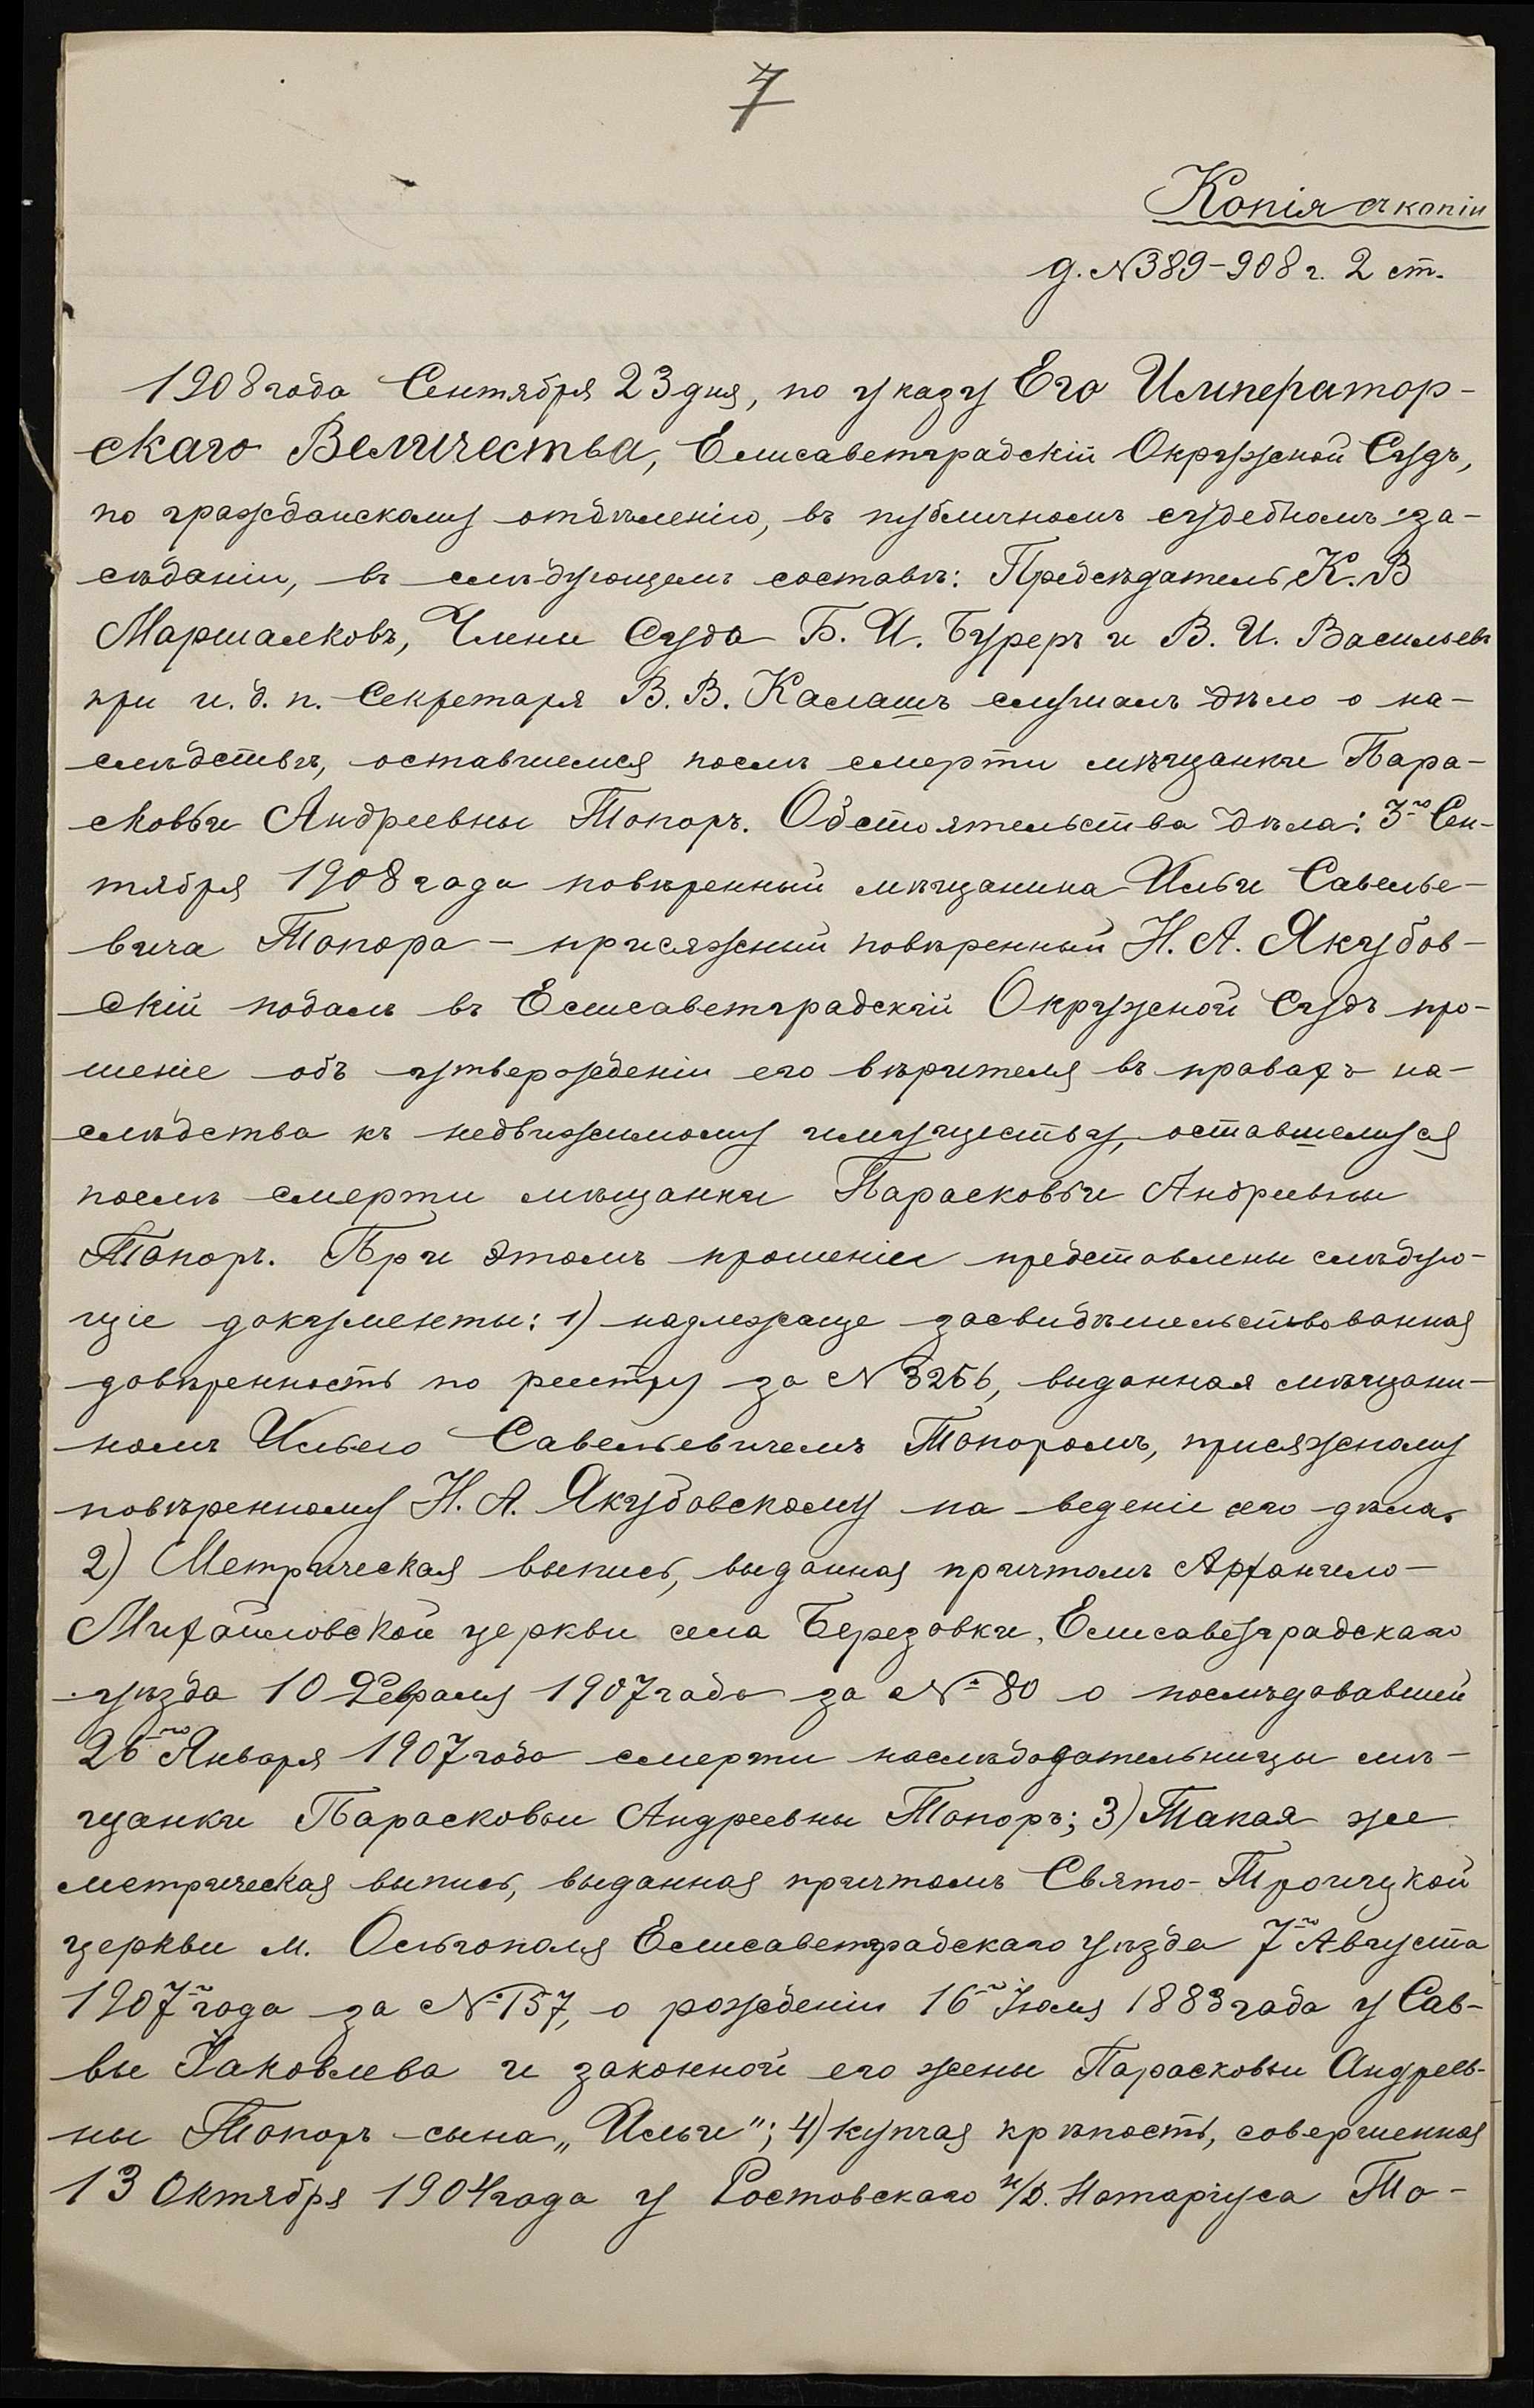 7
Копія съ копіи
д. №389-908 г. 2 ст.
1908 года Сентября 23 дня, по указу Его Император-
скаго Величества, Елисаветградскій Окружной Судъ,
по гражданскому отдѣленію, въ публичномъ судебномъ за-
сѣданіи, въ слѣдующемъ составѣ: Предсѣдатель К. В
Маршалковъ, Члены Суда Б. И. Буреръ и В. И. Васильевъ
при и. д. п. Секретаря В. В. Калашъ слушалъ дѣло о на-
слѣдствѣ, оставшемся послѣ смерти мѣщанки Пара-
сковьи Андреевны Топоръ. Обстоятельства дѣла: 3го Сен-
тября 1908 года повѣренный мѣщанина Ильи Савелье-
вича Топора - присяжный повѣренный Н. А. Якубов-
скій подалъ въ Елисаветградскій Окружной Судъ про-
шеніе объ утвержденіи его вѣрителя въ правахъ на-
слѣдства къ недвижимому имуществу, оставшемуся
послѣ смерти мѣщанки Парасковьи Андреевны
Топоръ. При этомъ прошеніи представлены слѣдую-
щіе документы: 1) надлежаще засвидѣтельствованная
довѣренность по реестру за №3256, выданная мѣщани-
номъ Ильею Савельевичемъ Топоромъ, присяжному
повѣренному Н. А. Якубовскому на веденіе сего дѣла.
2) Метрическая выпись, выданная причтомъ Архангело-
Михайловской церкви села Березовки, Елисаветградскаго
уѣзда 10 Февраля 1907 года за № 80 о послѣдовавшей
26го Января 1907 года смерти наслѣдодательницы мѣ-
щанки Парасковьи Андреевны Топоръ; 3) Такая же
метрическая выпись, выданная причтомъ Свято-Троицкой
церкви м. Ольгополя Елисаветградскаго уѣзда 7го Августа
1907го года за №157, о рожденіи 16го Іюля 1883 года у Сав-
вы Іаковлева и законной его жены Парасковьи Андреев-
ны Топоръ сына „Ильи"; 4) купчая крѣпость, совершенная
13 Октября 1904 года у Ростовскаго н/Д. Нотаріуса То-